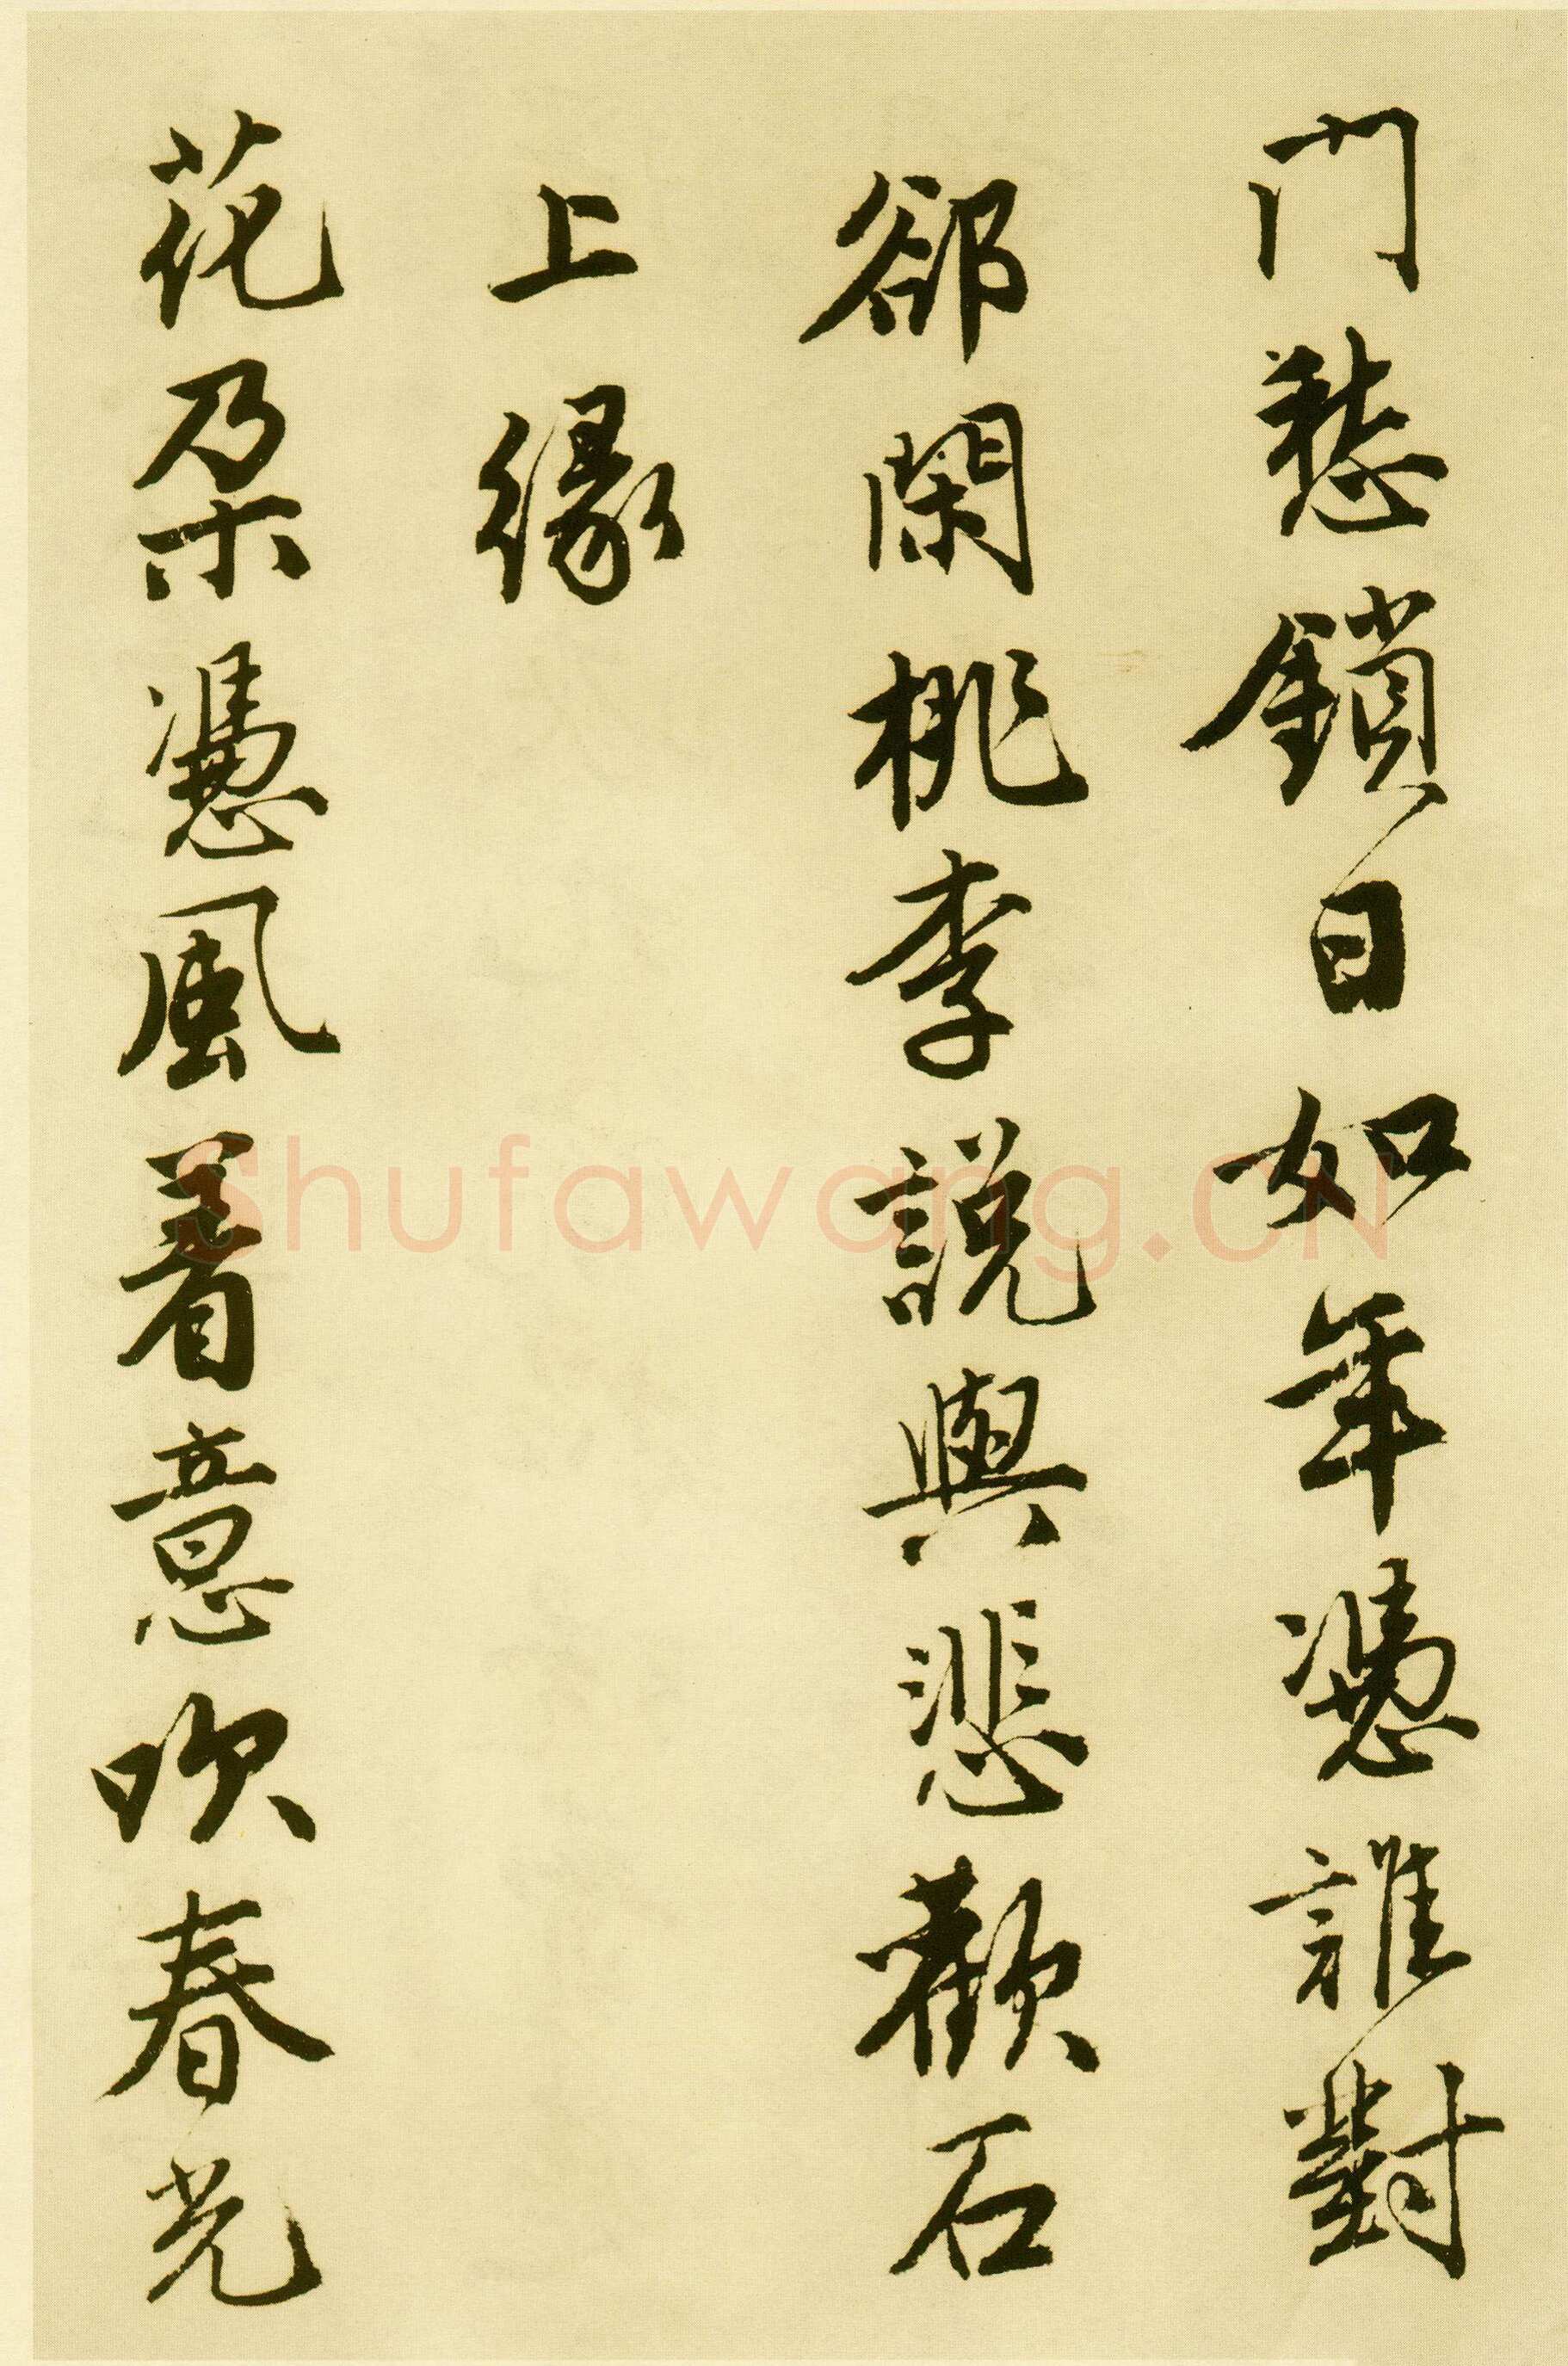 門愁鎖日如年憑誰對
卻閑桃李說與悲歡石
上緣
花朵憑風着意吹春光
shufawang.CN